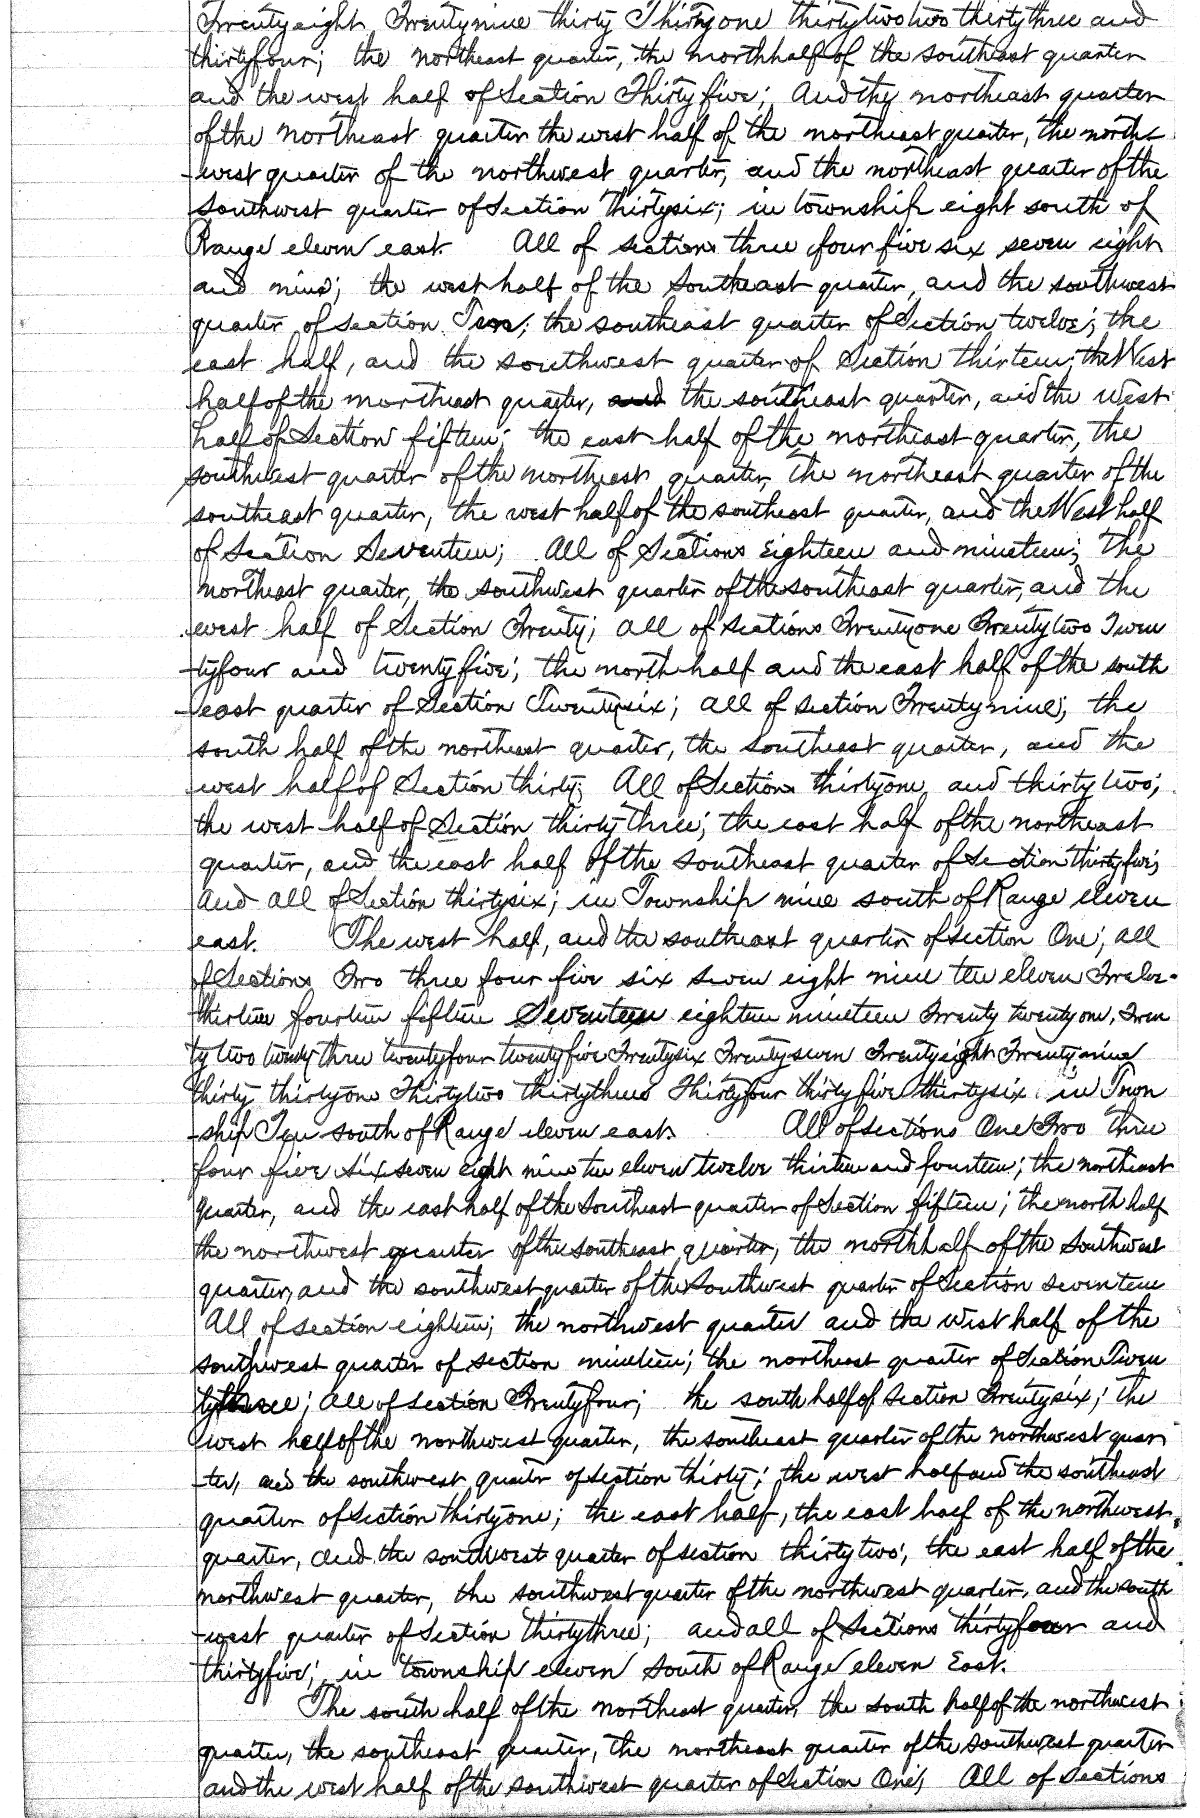 Twentyeight, Twentynine thirty Thirtyone thirtytwo two thirtythree and
thirtyfour; the northeast quarter, the northhalf of the southeast quarter
and the west half of Section Thirtyfive; And the northeast quarter
of the northeast quarter the west half of the northeast quarter, the north-
-west quarter of the northwest quarter, and the northeast quarter of the
Southwest quarter of Section Thirtysix; in township eight south of
Range eleven east. All of sections three four five six seven eight
and nine; the west half of the Southeast quarter, and the southwest
quarter of section Ten; the southeast quarter of Section twelve; the
east half, and the southwest quarter of Section thirteen; the West
half of the northeast quarter, and the southeast quarter, and the West
half of Section fifteen; the east half of the northeast quarter, the
southwest quarter of the northeast quarter, the northeast quarter of the
southeast quarter, the west half of the southeast quarter, and the West half
of Section Seventeen; All of Sections Eighteen and nineteen; the
northeast quarter, the southwest quarter of the southeast quarter, and the
west half of Section Twenty; all of sections Twentyone Twentytwo Twen
-tyfour and twentyfive; the north half and the east half of the south
-east quarter of Section Twentysix; all of section Twentynine; the
south half of the northeast quarter, the Southeast quarter, and the
west half of Section thirty; All of Sections thirtyone, and thirtytwo;
the west half of Section thirty-three; the east half of the northeast
quarter, and the east half of the southeast quarter of Section thirtyfive;
And all of Section thirtysix; in Township nine south of Range eleven
east. The west half, and the southeast quarter of section One; all
of Sections Two three four five six seven eight nine ten eleven Twelve-
thirteen fourteen fifteen Seventeen eighteen nineteen Twenty twentyone, Twen
ty two twenty three twentyfour twentyfive Twentysix Twentyseven Twentyeight Twentynine
thirty thirtyone Thirtytwo thirtythree Thirtyfour thirtyfive thirtysix in Town
-ship Ten south of Range eleven east. All of sections One Two three
four five six seven eight nine ten eleven twelve thirteen and fourteen; the northeast
quarter, and the east half of the Southeast quarter of Section fifteen; the north half
the northwest quarter of the southeast quarter, the north half of the Southwest
quarter, and the southwest quarter of the Southwest quarter of Section seventeen
All of section eighteen; the northwest quarter and the west half of the
southwest quarter of section nineteen; the northeast quarter of Section Twen
tythree; all of section Twentyfour; the south half of Section Twentysix; the
west half of the northwest quarter, the southeast quarter of the northwest quar
-ter, and the southwest quarter of section thirty; the west half and the southeast
quarter of Section thirtyone; the east half, the east half of the northwest
quarter, and the southwest quarter of section thirtytwo; the east half of the
northwest quarter, the southwest quarter of the northwest quarter, and the south
-west quarter of Section thirtythree; and all of Sections thirtyfour and
thirtyfive; in township eleven south of Range eleven East.
The south half of the northeast quarter, the south half of the northwest
quarter, the southeast quarter, the northeast quarter of the Southwest quarter
and the west half of the southwest quarter of Section One; All of Sections